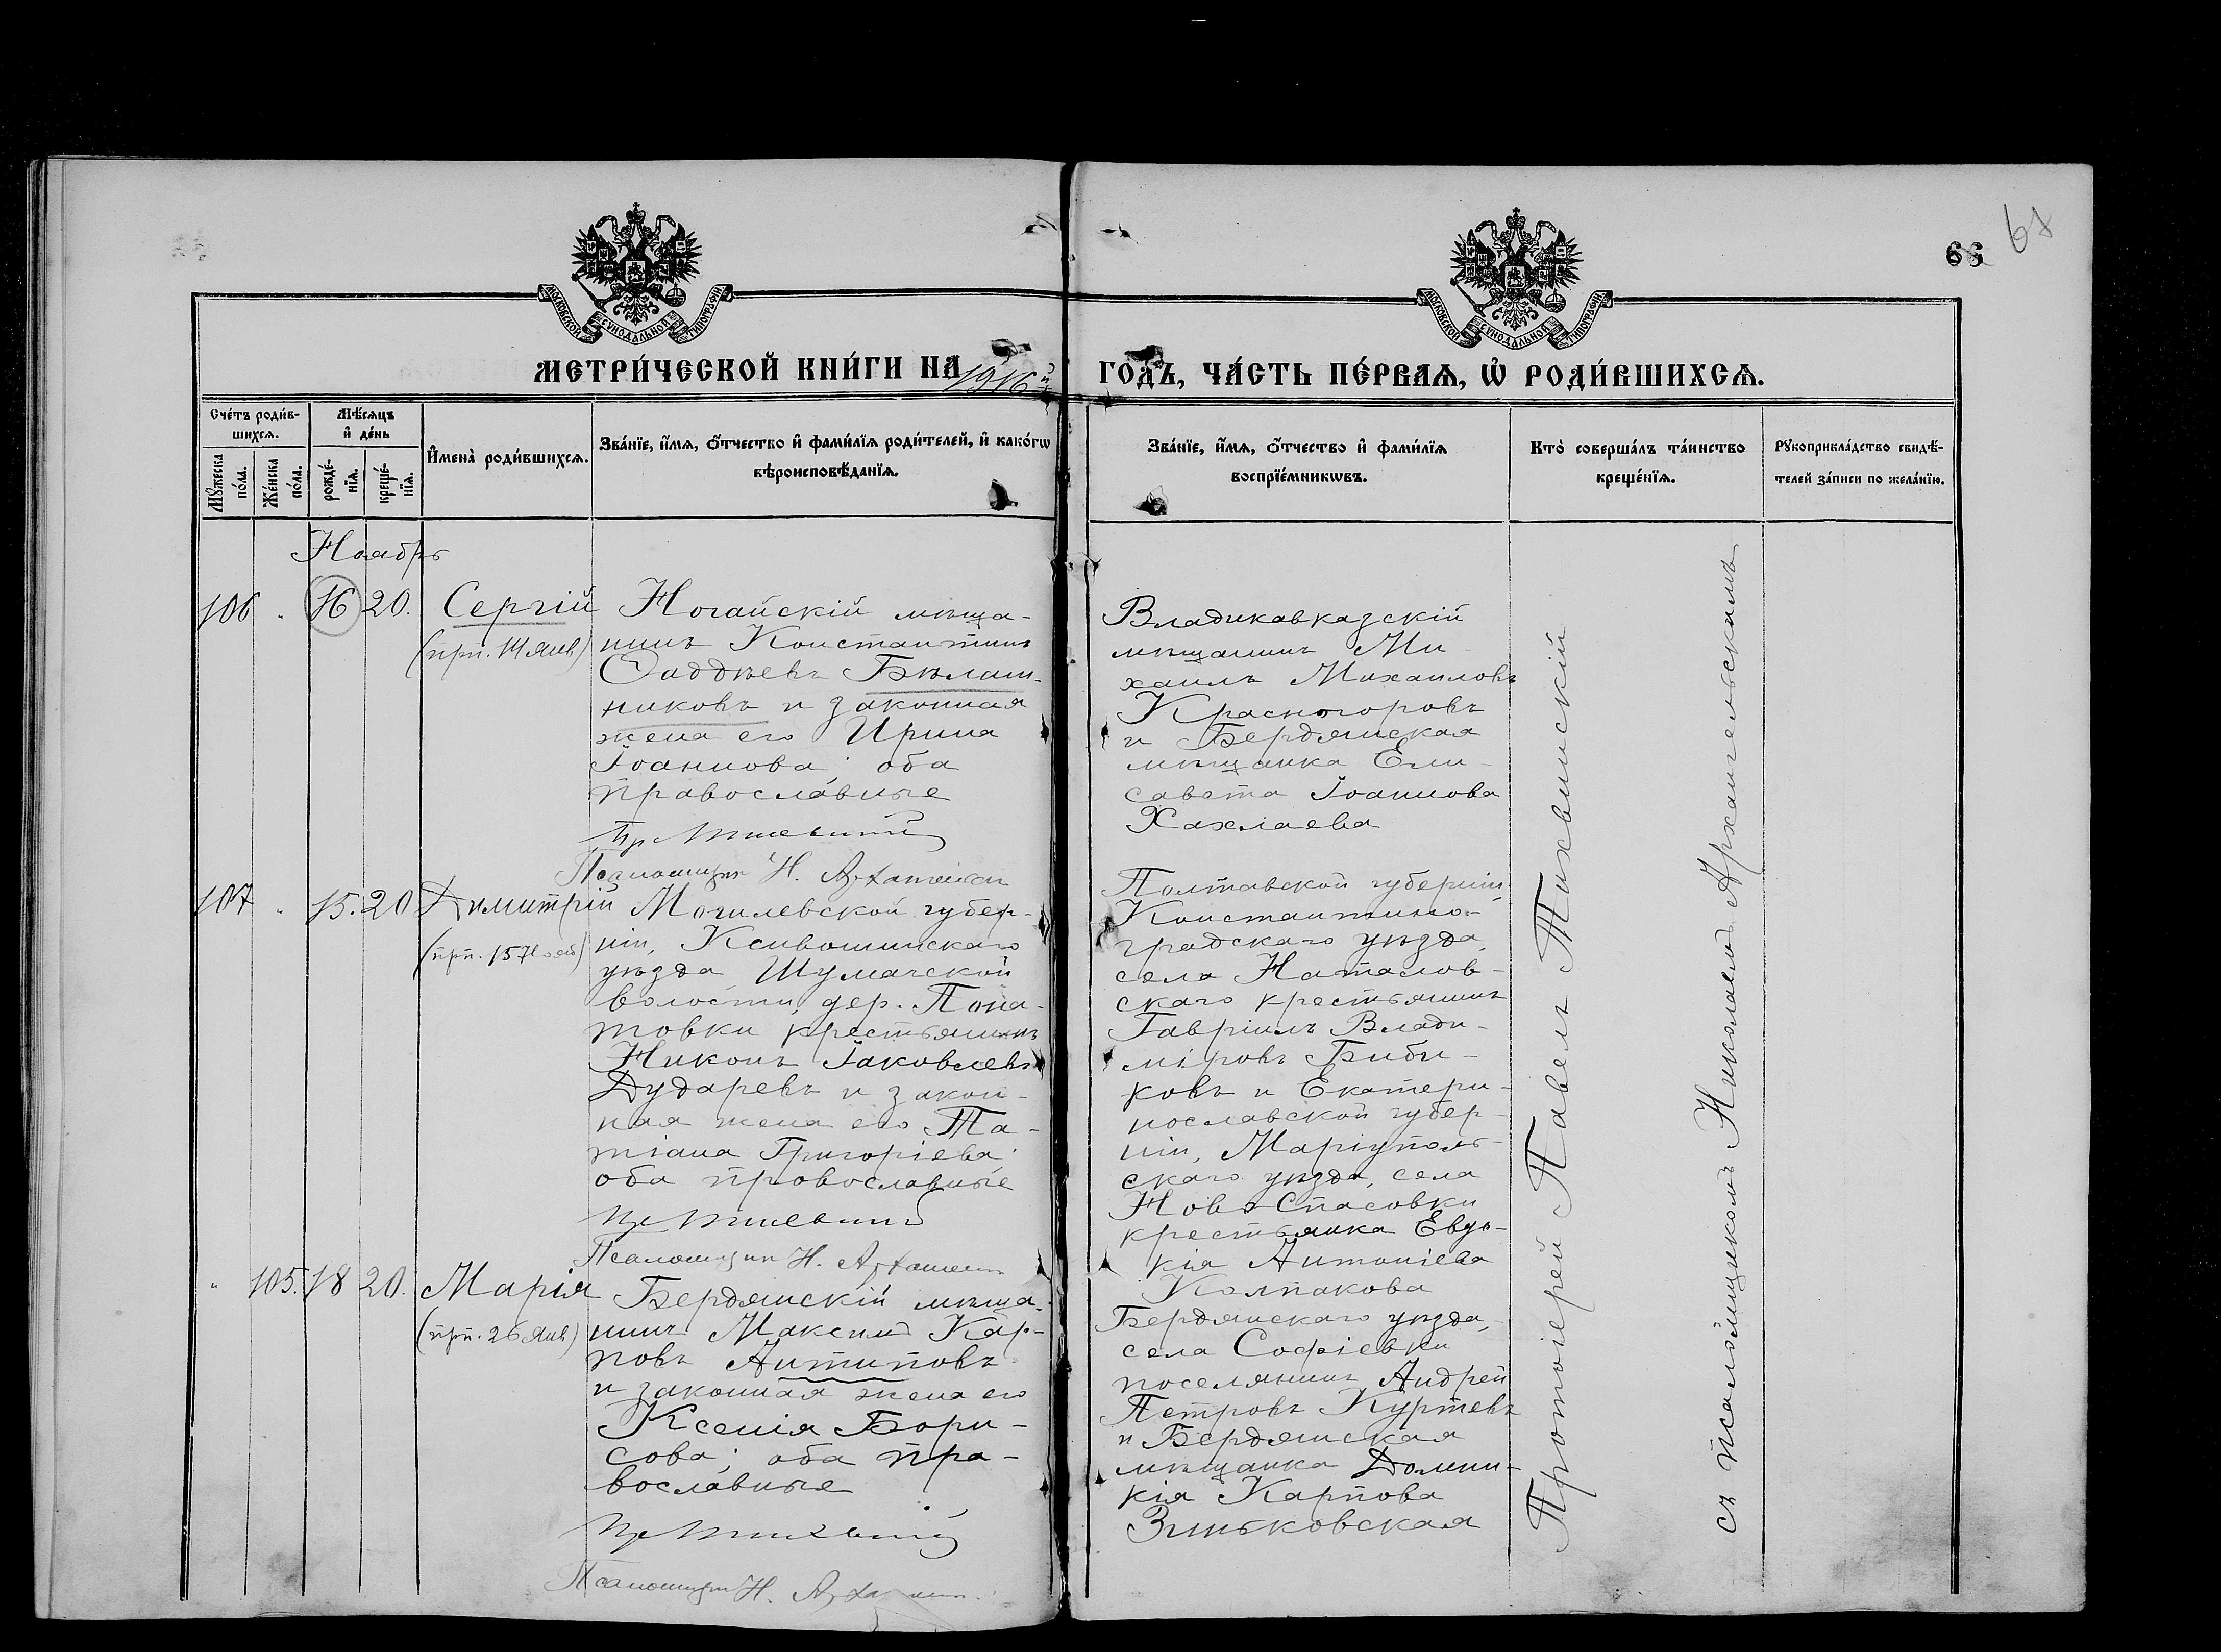 68
66
МОСКОВСКОЙ СѴНОДАЛЬНОЙ ТИПОГРАФІИ
МОСКОВСКОЙ СѴНОДАЛЬНОЙ ТИПОГРАФІИ
МЕТРИ́ЧЕСКОЙ КНИ́ГИ НА 1916й ГО́ДЪ, ЧА́СТЬ ПЕ́РВАѦ, Ѡ҆ РОДИ́ВШИХСѦ.
Сче́тъ роди́в-
шихсѧ.
Мѣ́сѧцъ
и҆ де́нь
Мꙋ́жеска по́ла.
Же́нска по́ла.
рожде́-
нїѧ.
креще́-
нїѧ.
И҆мена̀ роди́вшихсѧ.
Зва́нїе, и҆́мѧ, ѻ҆́тчество и҆ фами́лїѧ роди́телей, и҆ како́гѡ
вѣроисповѣ́данїѧ.
Зва́нїе, и҆́мѧ, ѻ҆́тчество и҆ фами́лїѧ
воспрїе́мникѡвъ.
Кто̀ соверша́лъ та́инство
креще́нїѧ.
Рꙋкоприкла́дство свидѣ́-
телей за́писи по жела́нїю.
Ноябрь
106 " 16 20. Сергій
(прп. 14 янв)
Ногайскій мѣща-
нинъ Константинъ
Фаддѣевъ Бѣлаш-
никовъ и законная
жена его Ирина
Іоаннова; оба
православные
Пр. Тихвинскій
Псаломщик Н. Архангельскій
Владикавказскій
мѣщанинъ Ми-
хаилъ Михаиловъ
Красногоровъ
и Бердянская
мѣщанка Ели-
савета Іоаннова
Хахлаева
107 " 15. 20 Димитрій
(прп. 15 Нояб)
Могилевской губер-
ніи,
уѣзда,
волости, дер.
товки крестьянинъ
Никонъ Іаковлевъ
Дударевъ и закон-
ная жена его Та-
тіана Григоріева;
оба православные
Пр. Тихвинскій
Псаломщик Н. Архангельскій
Полтавской губерніи
Константино-
градскаго уѣзда,
села Наталов-
скаго крестьянинъ
Гавріилъ Влади-
міровъ Биби-
ковъ и Екатери-
нославской губер-
ніи, Маріуполь-
скаго уѣзда, села
Ново-Спасовки
крестьянка Евдо-
кія Антоніева
Колпакова
" 105. 18 20. Марія
(прп. 26 янв)
Бердянскій мѣща-
нинъ Максимъ Кар-
повъ Антиповъ
и законная жена его
Ксенія Бори-
сова; оба пра-
вославные
Пр. Тихвинскій
Псаломщик Н. Архангельскій
Бердянскаго уѣзда,
села Софіевки
поселянинъ Андрей
Петровъ Куртевъ
и Бердянская
мѣщанка Домни-
кія Карпова
Зиньковская
Протоіерей Павелъ Тихвинскій
съ псаломщикомъ Николаемъ Архангельскимъ